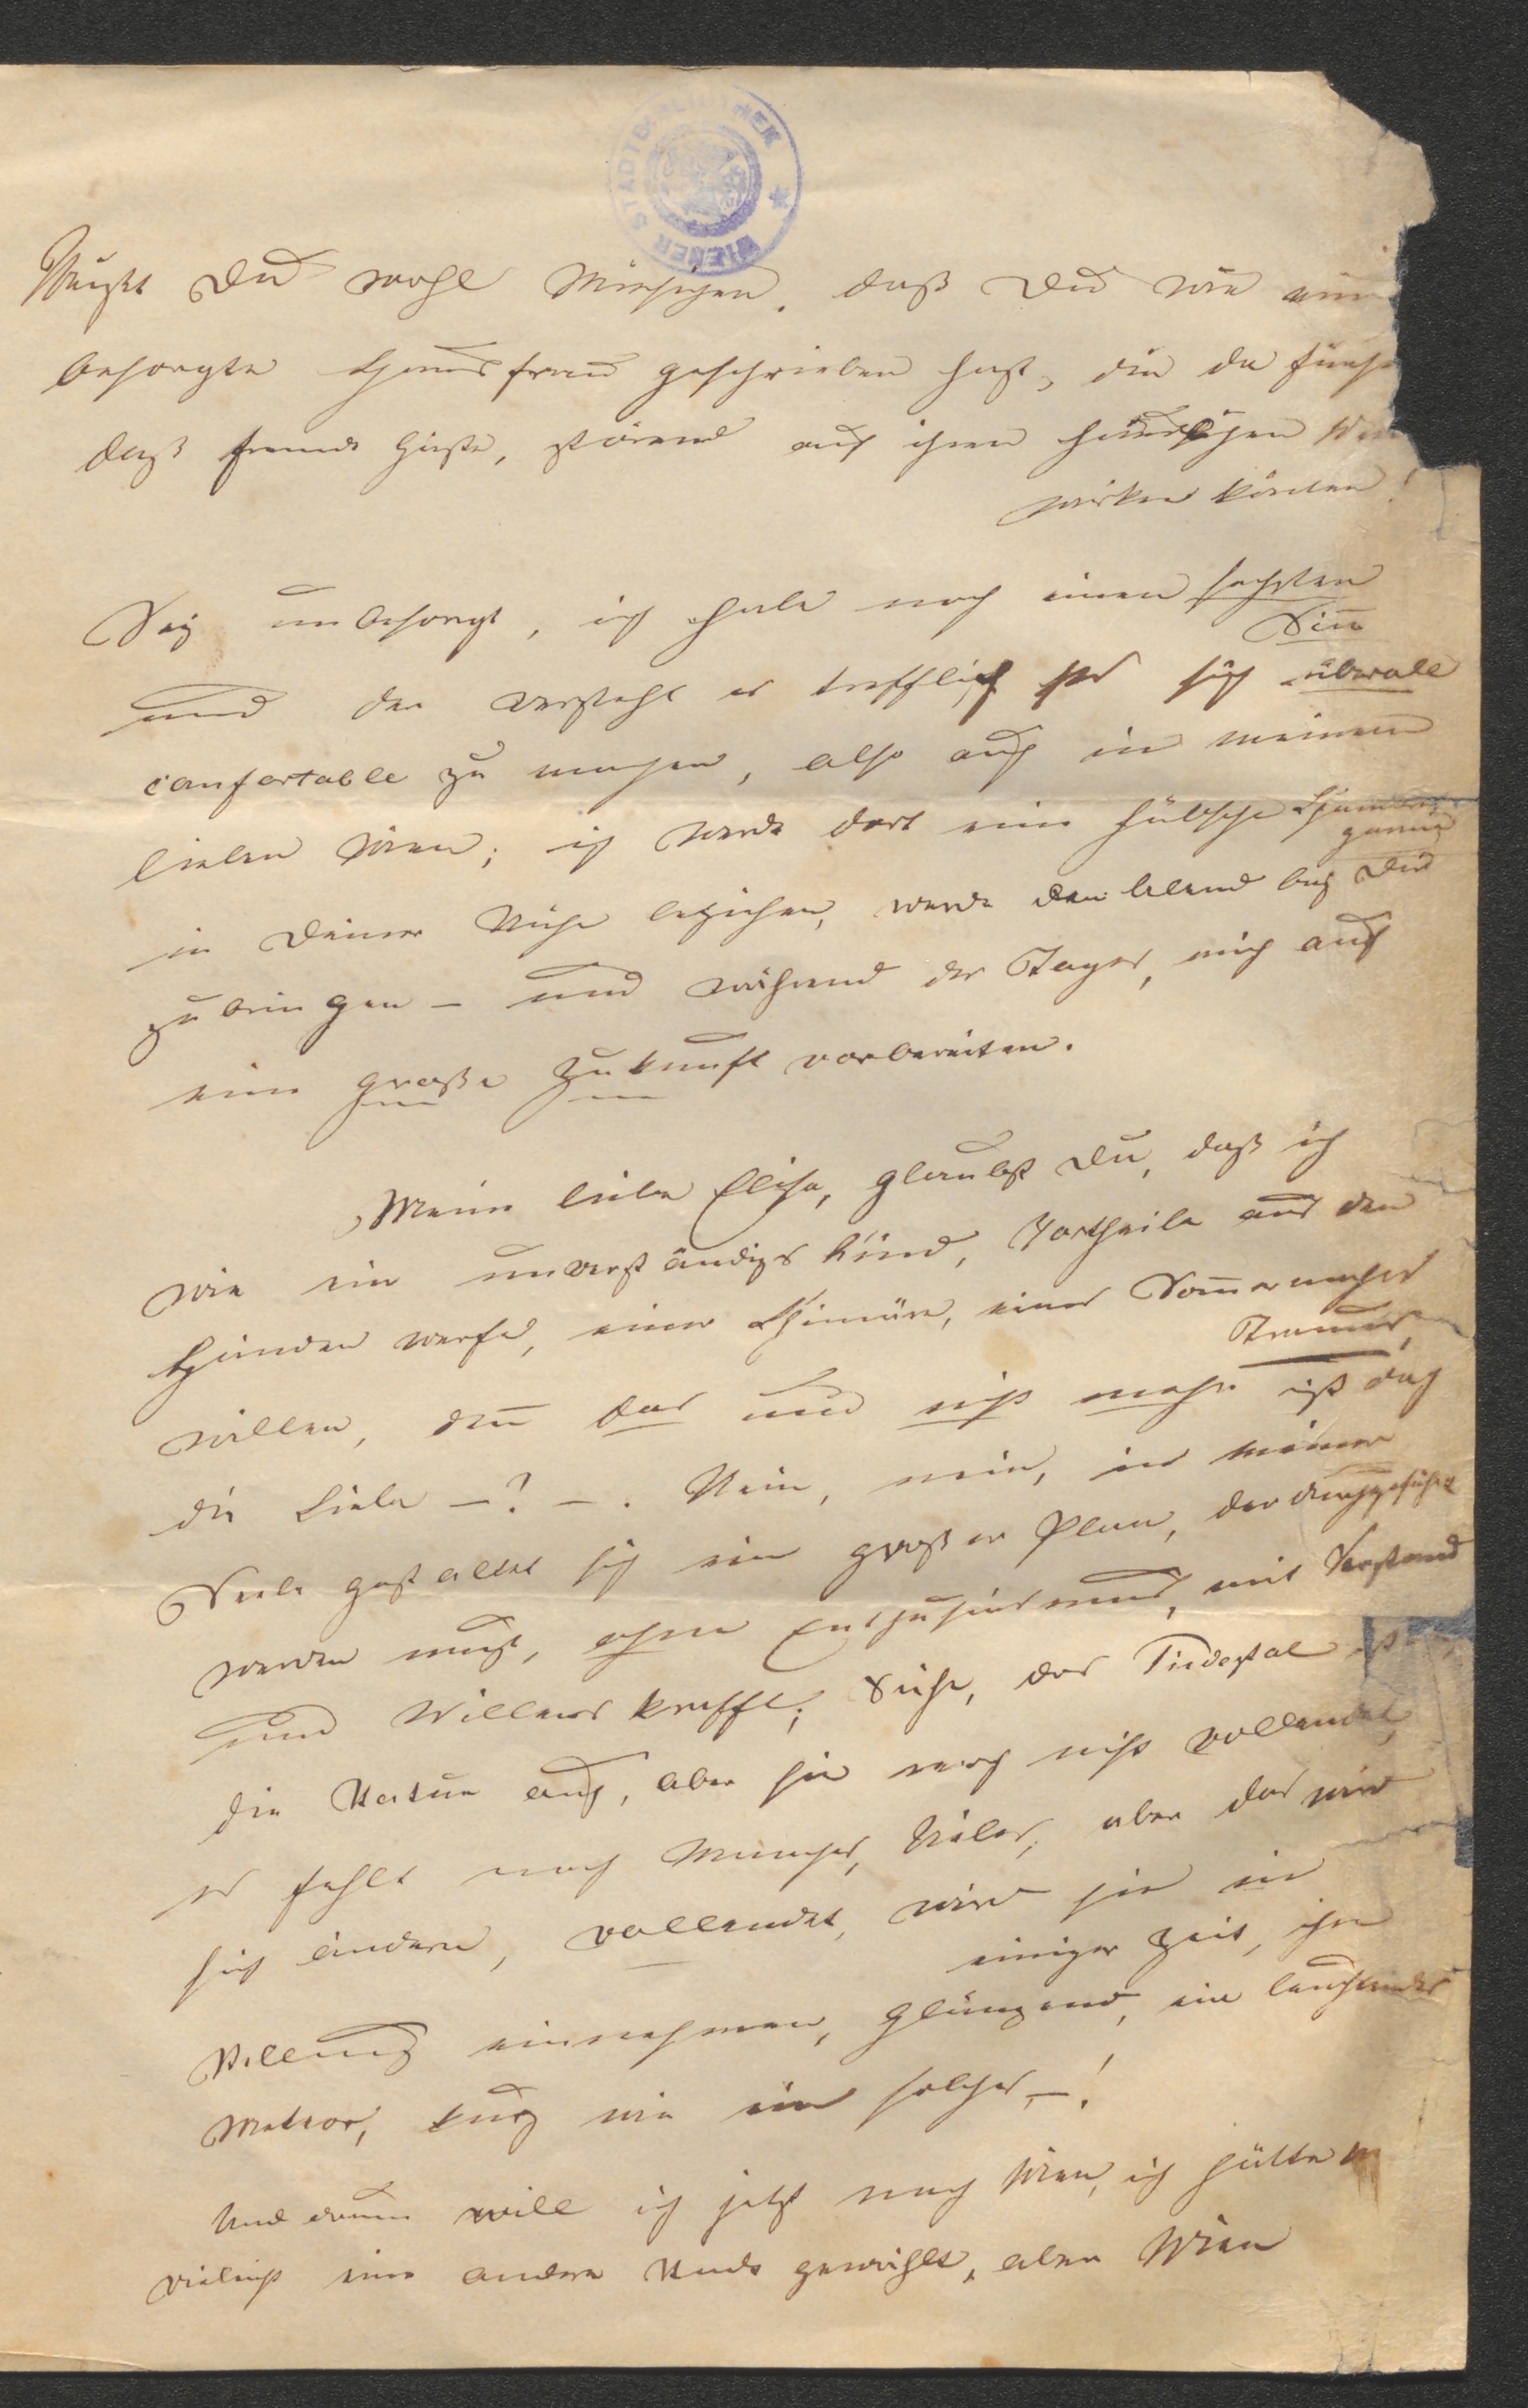 WIENER STADTBIBLIOTHEK
Weißt Du wohl daß Du wie eine
besorgte Hausfrau geschrieben hast, die da fürchte
daß fremde Gäste, störend auf ihren häuslichen
wirken könten!
Sey unbesorgt, ich habe noch einen sechsten
Sinn
und der versteht es trefflich sich überall
comfortable zu machen, also auch in meinem
lieben Wien; ich werde dort eine hübsche Chambre
garnie
in Deiner Nähe beziehen, werde den Abend bey Dir
zubringen – und während des Tages, mich auf
eine große Zukunft vorbereiten.
Meine liebe Elise, glaubst Du, daß ich
wie ein unverständiges Kind, Vortheile aus den
Händen werfe, einer Chimäre, eines Sommernachts
Traumes,
willen, den das und nicht mehr ist doch
die Liebe – ? – . Nein, nein, in meiner
Seele gestaltet sich ein großer Plan, der durchgeführt
werden muß, ohne Enthusiasmus, mit Verstand
und Willenskrafft; Siehe, das Piedestal ist
die Statue auch, aber sie noch nicht vollendet,
es fehlt noch Manches, Vieles, aber das wird
sich ändern, vollendet, wird sie in
einiger Zeit, ihre
Stellung einnehmen, glänzend, ein leuchtendes
Meteor, kurz wie ein solches, – !
Und darum will ich jetzt nach Wien, ich hätte
vieleicht eine andere Stadt gewählt, aber Wien